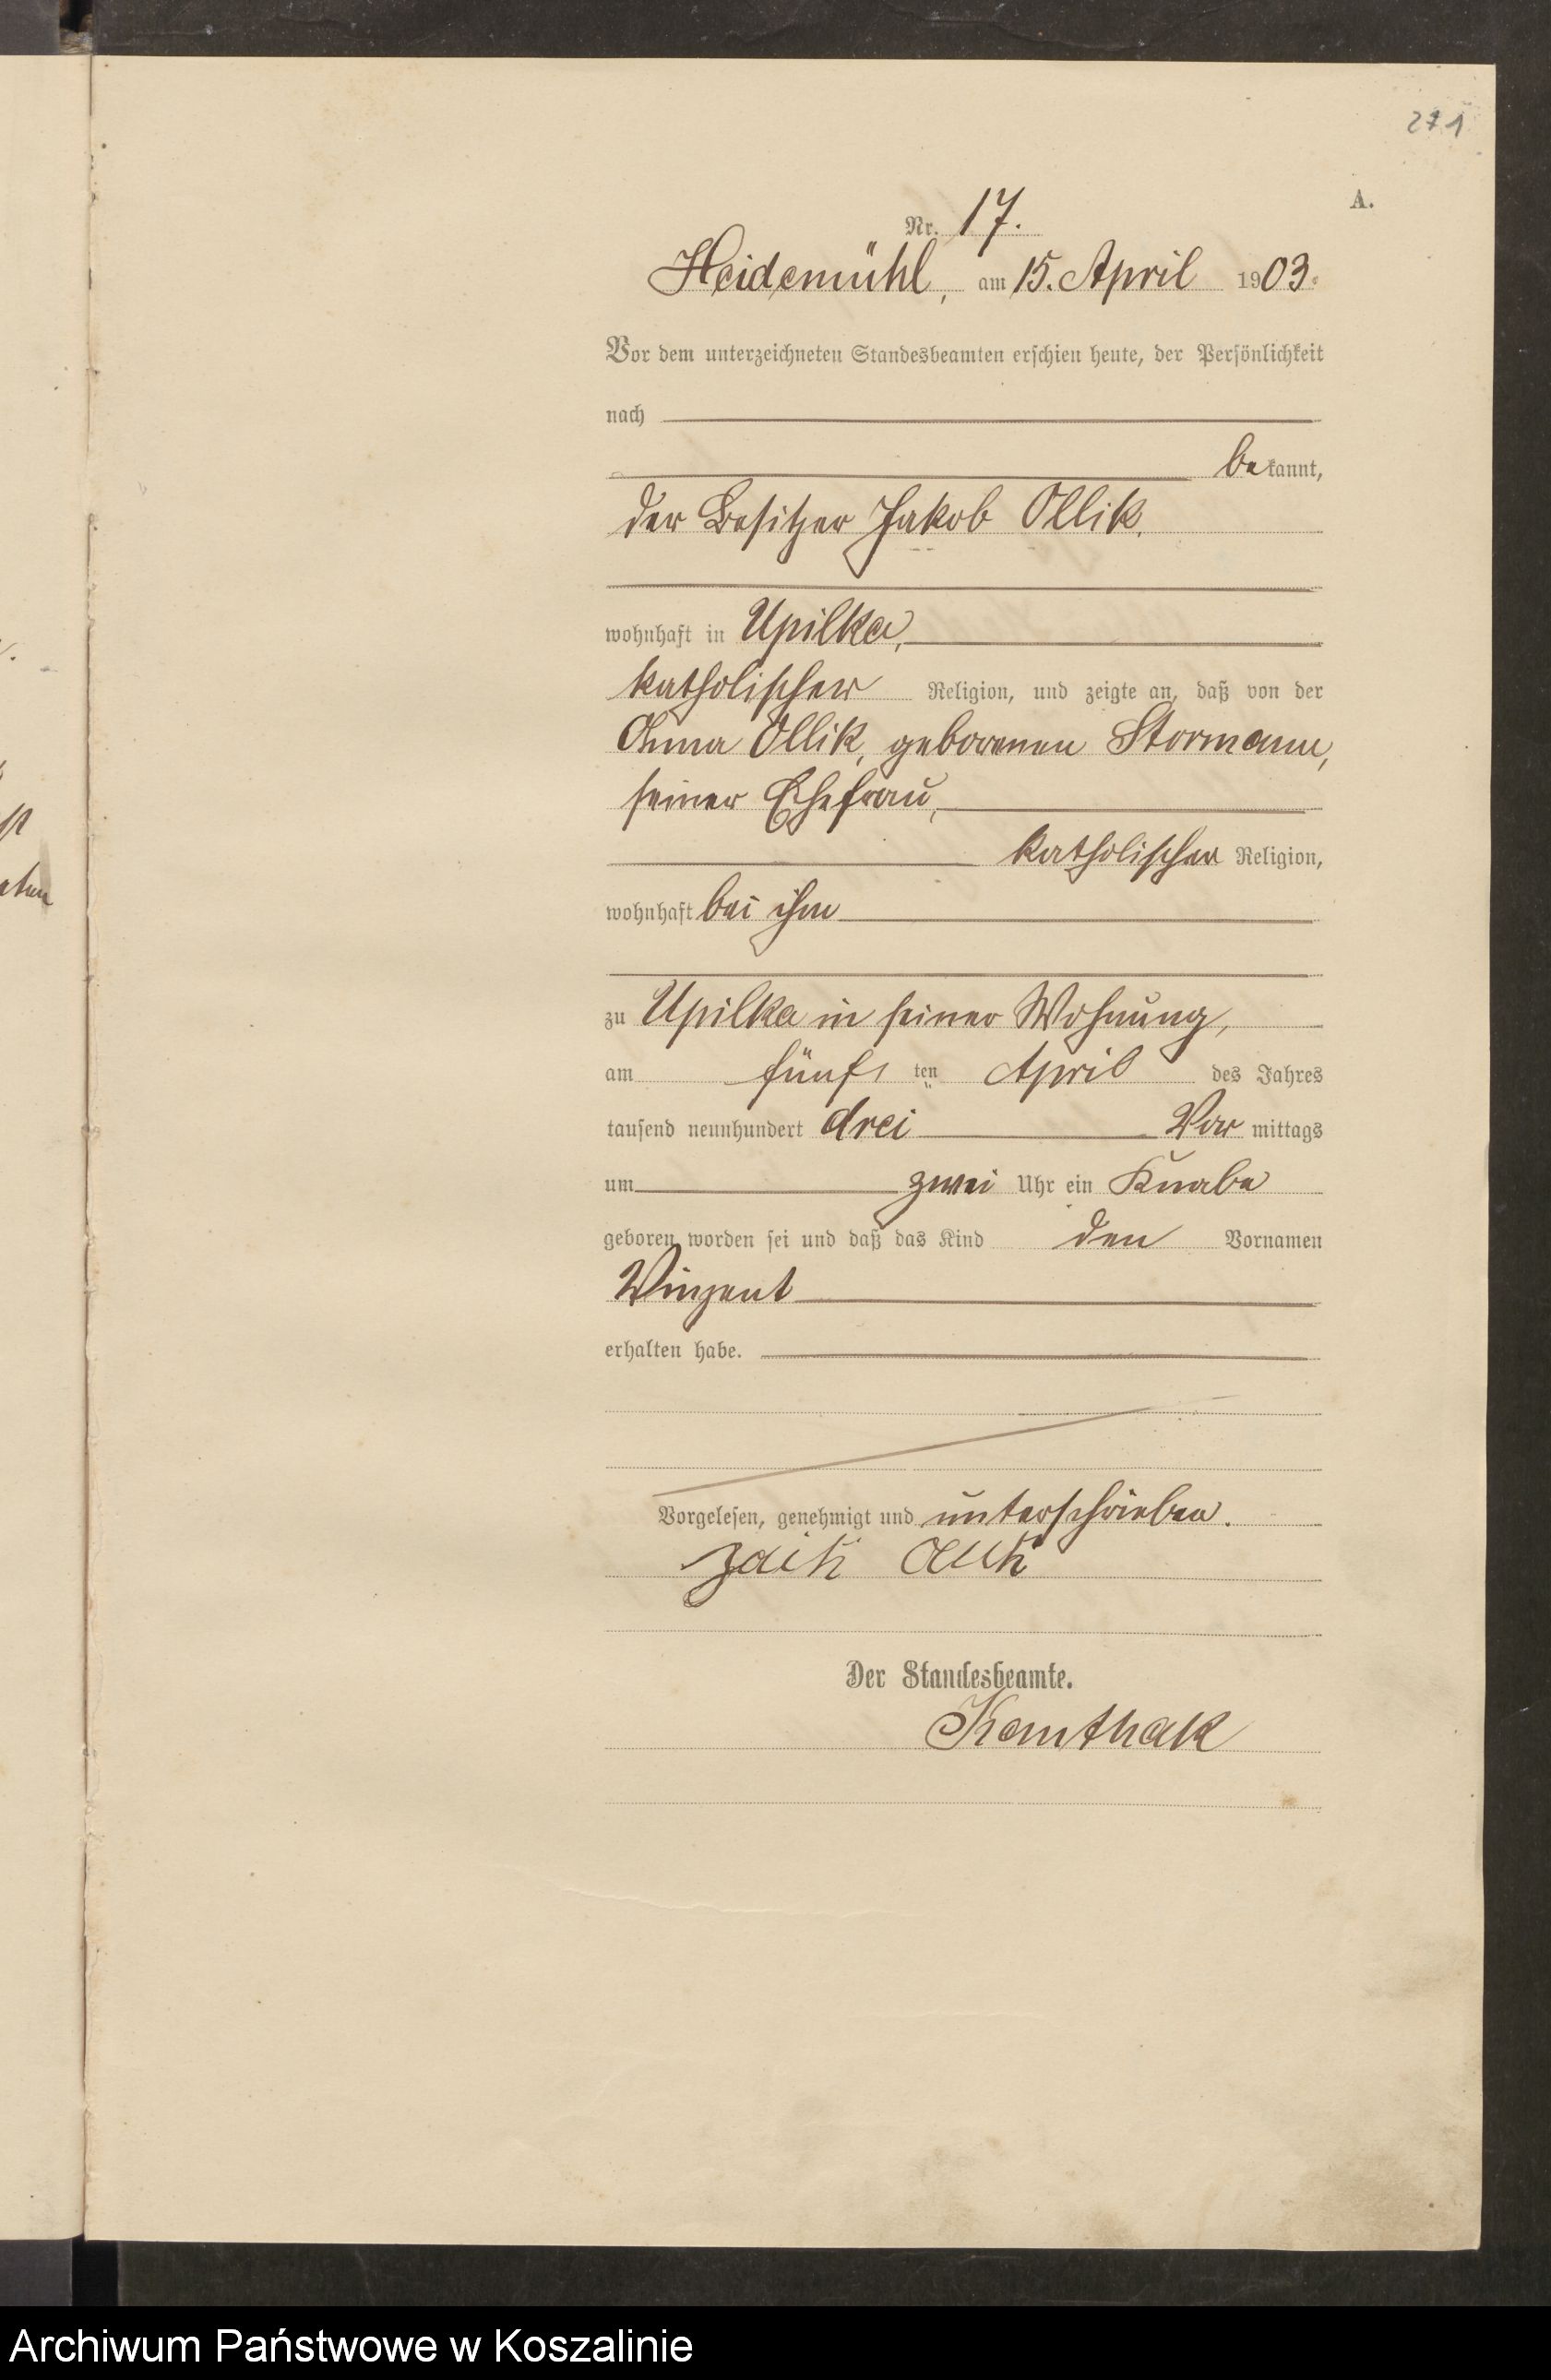 271
A.
Nr. 17.
Heidemühl, am 15. April 1903.
Vor dem unterzeichneten Standesbeamten erschien heute, der Persönlichkeit
nach
bekannt,
der Besitzer Jakob Ollik.
wohnhaft in Upilka,
katholischer Religion, und zeigte an, daß von der
Anna Ollik, geborenen Stormann,
seiner Ehefrau,
katholischer Religion,
wohnhaft bei ihm
zu Upilka in seiner Wohnung,
am fünften April des Jahres
tausend neunhundert drei Vor mittags
um zwei Uhr ein Knabe
geboren worden sei und daß das Kind den Vornamen
Vinzent
erhalten habe.
Vorgelesen, genehmigt und unterschrieben.
Der Standesbeamte.
Kanthak
Archiwum Państwowe w Koszalinie